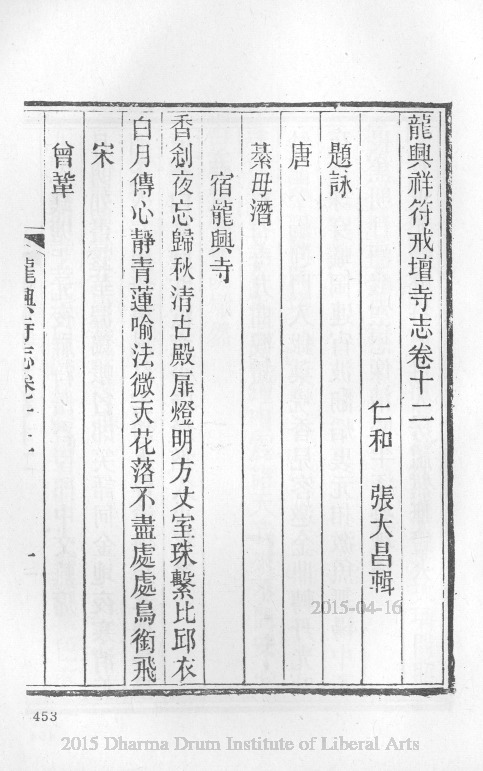 龍興祥符戒壇寺志卷十二
仁和 張大昌輯
題詠
唐
綦毋潛
宿龍興寺
香刹夜忘歸秋清古殿扉燈明方丈室珠繫比邱衣
白月傳心靜青蓮喻法微天花落不盡處處鳥銜飛
宋
曾鞏
龍興寺志卷十二 一
2015-04-16
453
2015 Dharma Drum Institute of Liberal Arts